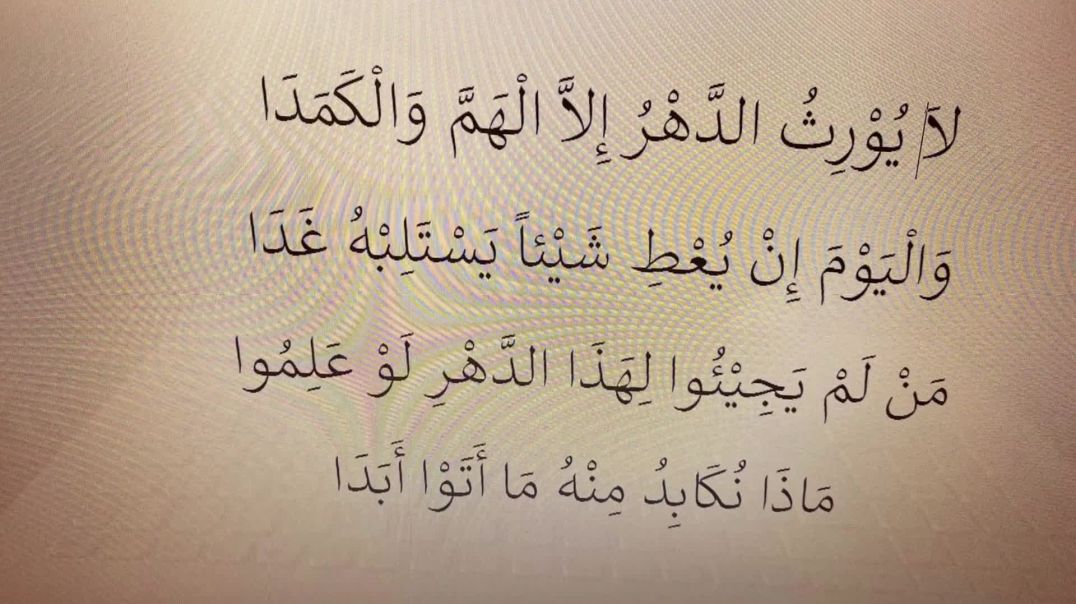 لاَ يُوْرِثُ الدَّهْرُ إِلاَّ الْهَمَّ وَالْكَمَدَا
وَالْيَوْمَ إِنْ يُعْطِ شَيْئاً يَسْتَلِبْهُ غَدَا
مَنْ لَمْ يَجِيْئُوا لِهَذَا الدَّهْرِ لَوْ عَلِمُوا
مَاذَا نُكَابِدُ مِنْهُ مَا أَتَوْا أَبَدَا